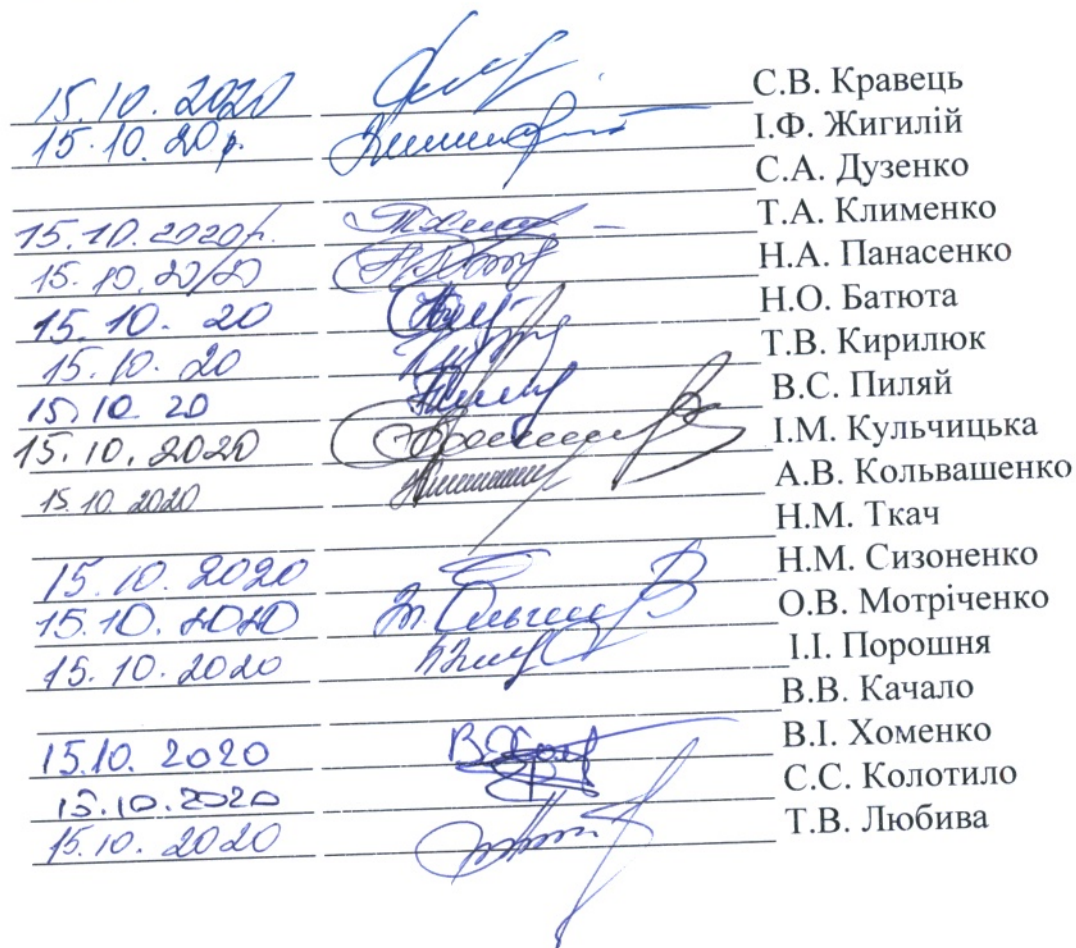 15.10.2020 С.В. Кравець
15.10.20р. І.Ф. Жигилій
С.А. Дузенко
15.10.2020р. Т.А. Клименко
15.10.2020 Н.А. Панасенко
15.10.20 Н.О. Батюта
15.10.20 Т.В. Кирилюк
15.10.20 В.С. Пиляй
15.10.2020 І.М. Кульчицька
15.10.2020 А.В. Кольвашенко
Н.М. Ткач
15.10.2020 Н.М. Сизоненко
15.10.2020 О.В. Мотріченко
15.10.2020 І.І. Порошня
В.В. Качало
15.10.2020 В.І. Хоменко
15.10.2020 С.С. Колотило
15.10.2020 Т.В. Любива